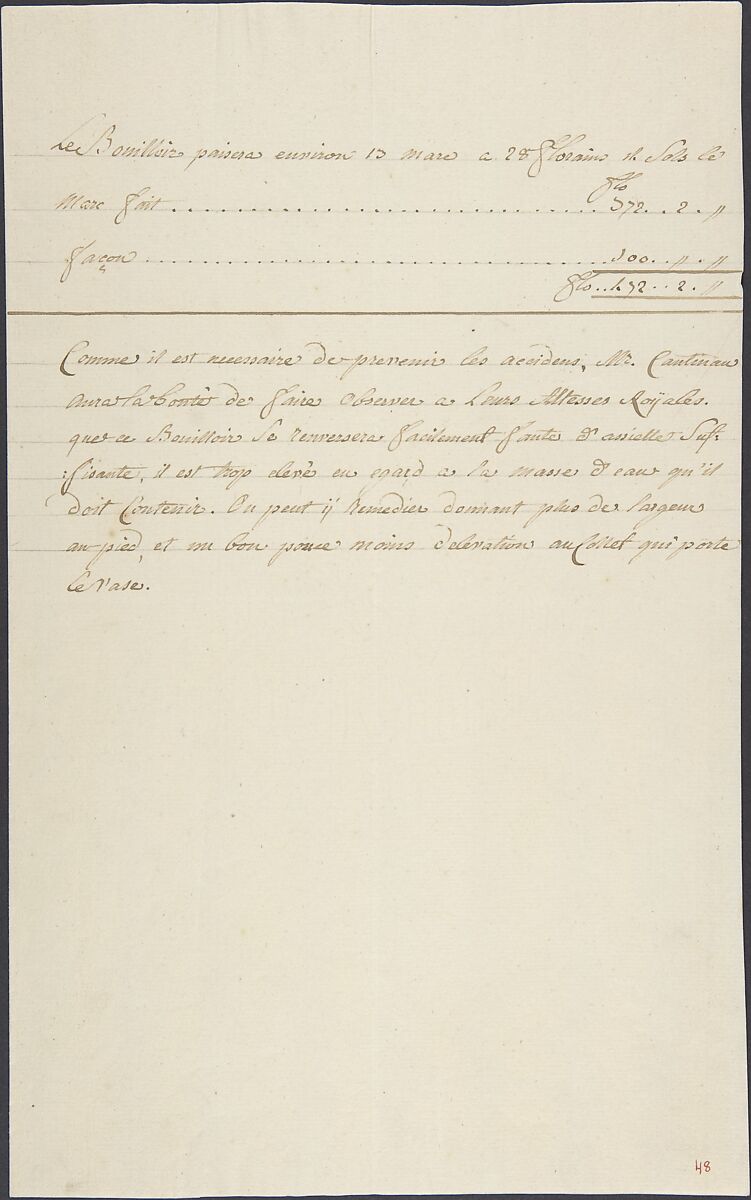 Le Bouilloir paisera environ 13 marc a 28 florains 14 Sols le
flo
Marc fait .......................................... 372..2.〃
façon .......................................... 100..〃.〃
flo..472..2.〃
Comme il est necessaire de prevenir les accidens, Mr. Cantineau
aura la bonté de faire observer a Leurs Altesses Roÿales.
que ce Bouilloir se renversera facilement faute d'assiette Suf:
:fisante, il est trop elevé eu egard a la masse d'eau qu'il
doit Contenir. On peut ÿ Remedier donnant plus de largeur
au pied, et un bon pouce moins d'elevation au Collet qui porte
le Vase.
48